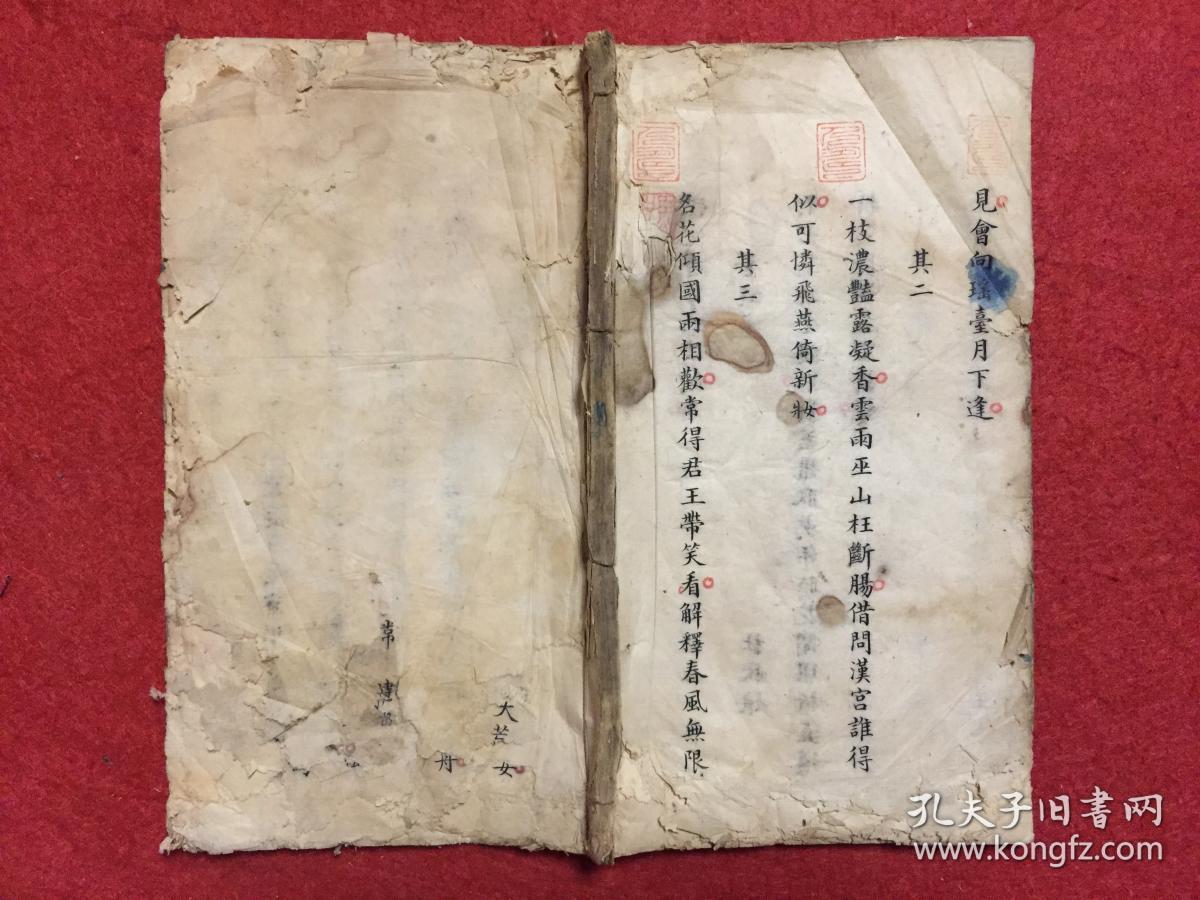 見會向瑤臺月下逢
其二
一枝濃豔露凝香雲雨巫山枉斷腸借問漢宮誰得
似可憐飛燕倚新妝
其三
名花傾國兩相歡常得君王帶笑看解釋春風無限
大
女
舟
常
孔夫子旧書网
www.kongfz.com